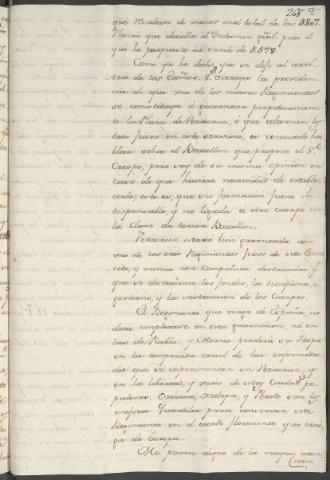 268
que hubiese de menos en el total de las 5807.
Plazas que detalla el Dictamen gral. pues el
que he propuesto no excede de 5578.
Como ya he dicho, que se dejó al arbi-
trio de los Cuerpos
la providen-
cia de que uno de los nuevos Regimientos
se constituya à guarnecer perpetuamente
la Plaza de Veracruz, ò que alternen los
tres fixos en este servicio, es escusado ha-
blar sobre el Batallon que propone el Sr.
Crespo, pero soy de su misma opinion en
caso de que huviese necesidad de estable-
cerlo; esto es, que su formacion fuese in-
dispensable, y no ligada à otro cuerpo en
la clase de tercer Batallon.
Veracruz estará bien guarnecida con
uno de los tres Regimientos fixos de este
y nunca con Compañias destacadas p.r
que se destruirian los fondos, la disciplina, el
govierno, y la instruccion de los Cuerpos.
El Regimiento que venga de España, no
debe emplearse en esta guarnicion, ni en
las de Puebla, y Mexico
en la temporada cruel de las enfermeda-
des que se experimentan en Veracruz, y
en las delicias, y vicios de estas Ciudades po-
pulosas. Orizava, Xalapa, y Perote son los
mejores Quarteles para conservar este
Regimiento en el estado floreciente que ven-
ga de Europa.
Me parece digna de la mayor aten-
cion